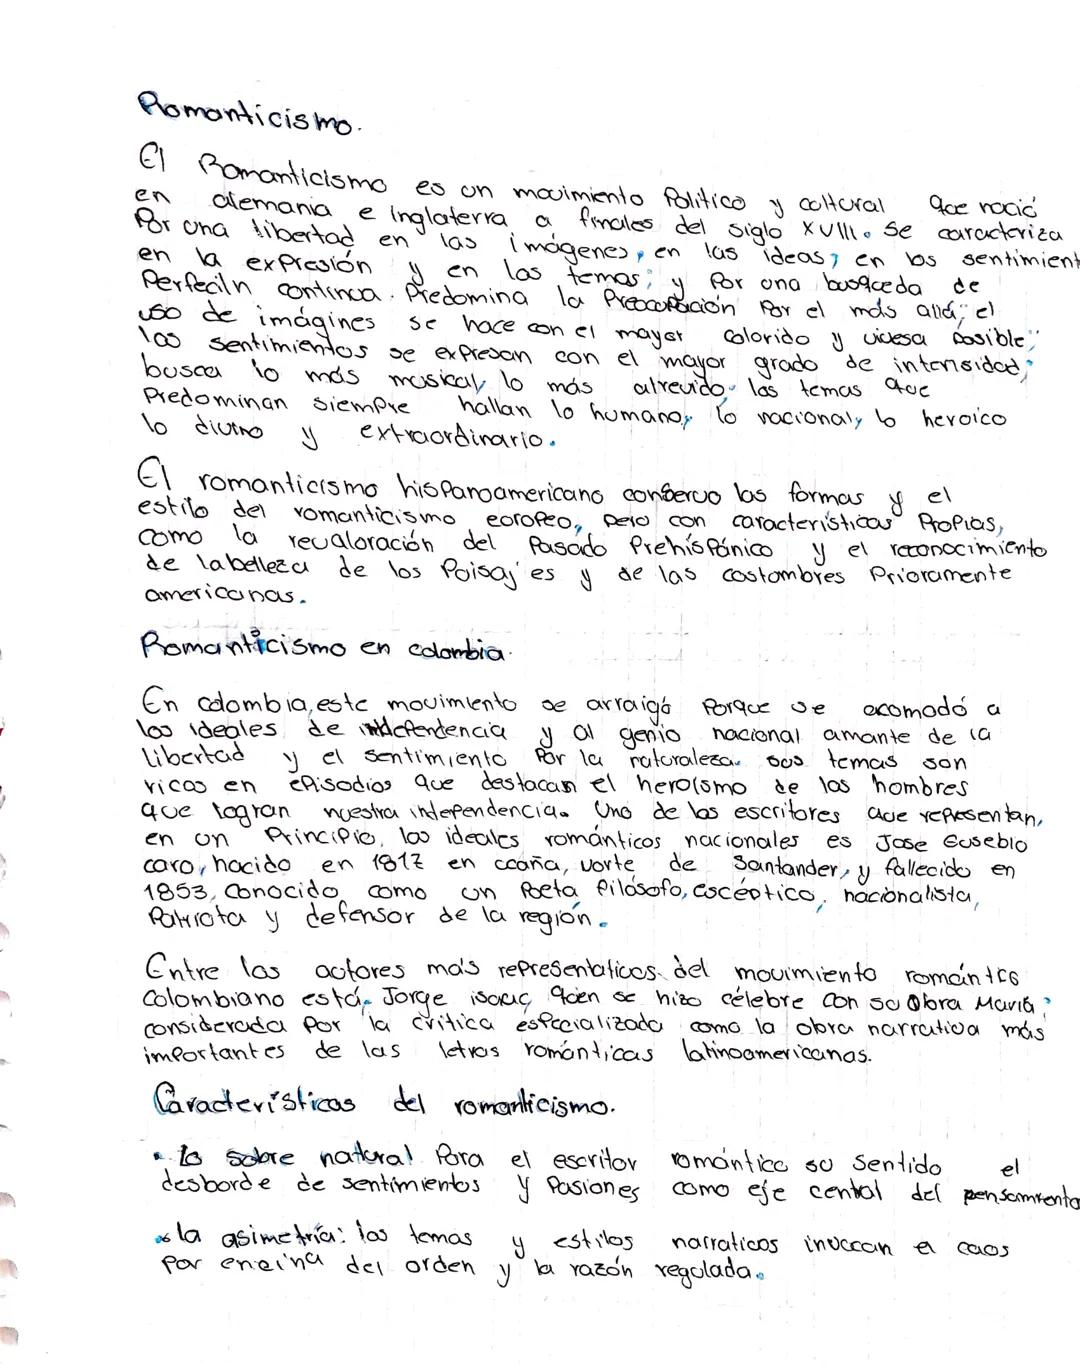 Romanticismo.
El Romanticismo es un movimiento Politico y coltural que nació
en alemania e inglaterra a finales del siglo XVIII. se caracteriza
Por una libertad en las imágenes, en las ideas, en los sentimient
en la expresión y en los temas; y Por una busqueda de
Perfeciln continua. Predomina la Preocupación Por el más allá; el
uso de imágines se hace con el mayor colorido y vivesa Posible;
los sentimientos se expresan con el mayor grado de intensidad;
busca lo más musical, lo más atrevido. las temas que
Predominan siempre hallan lo humano, lo nacional, lo heroico
lo divino y extraordinario.
El romanticismo hisPanoamericano conservo las formas y el
estilo del romanticismo eoroPeo, pero con características ProPias,
como la revaloración del Pasado PrehisPánico y el reconocimiento
de la belleza de los Poisajes y de las costombres Prioramente
americanas.
Romanticismo en colombia.
En colombia, este movimiento se arraigó Porque se acomodó a
los ideales de independencia y al genio nacional amante de la
libertad y el sentimiento Por la naturaleza. sus temas son
ricos en ePisodios que destacan el heroísmo de los hombres
que logran nuestra independencia. Uno de los escritores que rePresentan,
en un PrinciPio, los ideales románticos nacionales es Jose Eusebio
caro, nacido en 1817 en ocaña, norte de Santander, y fallecido en
1853, conocido como un Poeta filósofo, escéptico, nacionalista,
Patriota y defensor de la región.
Entre los actores más rePresentaticos del movimiento romántico
colombiano está. Jorge isaac, quien se hizo célebre con su Obra María,
considerada Por la crítica esPecializada como la obra narrativa más
imPortantes de las letras románticas latinoamericanas.
Características del romanticismo.
• lo sobre natural Para el escritor romántico su sentido el
desborde de sentimientos y Pasiones como eje cental del pensamiento
• la asimetría: los temas y estilos narraticos invocan el caos
Por encina del orden y la razón regulada.